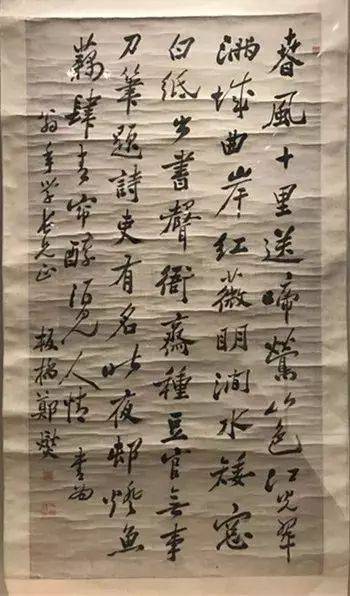 春風十里送啼鶯山色江光翠
滿城曲岸紅薇明澗水矮窓
白紙出書聲衙齋種豆官無事
刀筆題詩吏有名昨夜邨燈魚
藕肆青帘醉酒見人情 書為
翁年學長兄正 板橋鄭燮